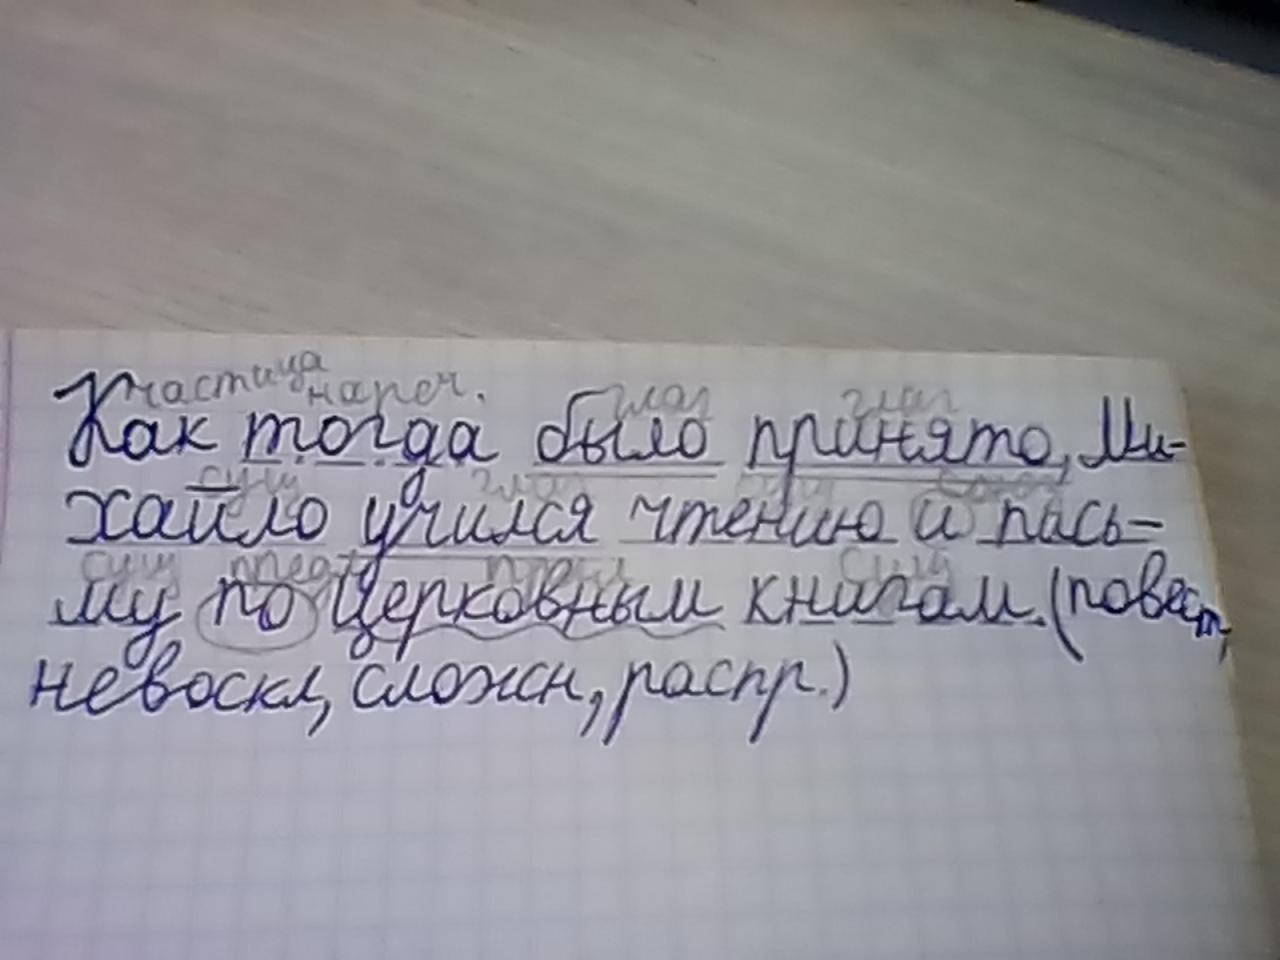 частица нареч. глаг глаг
Как тогда было принято, Ми-
сущ глаг сущ союз
хайло учился чтению и пась-
сущ предл прил сущ
му по церковным книгам. (повест,
невоскл, сложн, распр.)